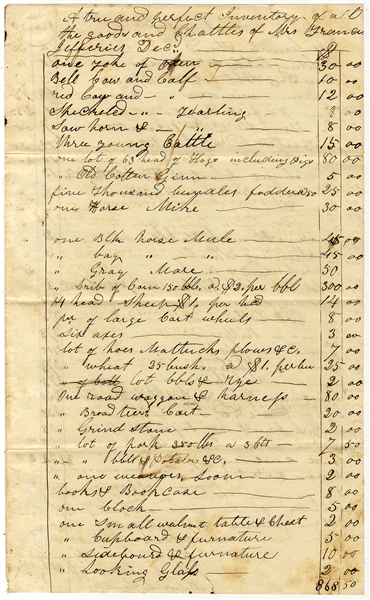 A true and perfect Inventory of all
the goods and Chattles of Mrs Frances
Jefferies Decd $
one yoke of Oxen 30 00
Bell Cow and Calf 10 00
red Cow and " 12 00
Speckeled " " Yearling 8 00
Saw horn & " " 8 00
three young Cattle 15 00
one lot of 63 head of Hogs including Pigs 80 00
" Old Cotton Ginn 5 00
five thousand bundles fodder a 50 25 00
one Horse Mike 30 00
one Blk nose Mule 45 00
" bay " " 45 00
" Gray Mare 50
" Crib of Corn 150 bbls. a $2. per bbl 300 00
14 head Sheep $1. per hd 14 00
pr of large Cart wheels 8 00
Six axes 3 00
lot of hoes Mattucks plows & c. 7 00
" wheat 25 bush. a $1. per bu 25 00
" lot bbls & Rye 2 00
One road waggon & harness 80 00
" Broad tier Cart 20 00
" Grind Stone 2 00
" lot of pork 250 lbs a 3 cts 7 50
" " bbls & Potatos & C. 3 00
" one Loom 2 00
books & Bookcase 8 00
one Clock 5 00
one Small walnut table & Chest 2 00
" Cupboard & furnature 5 00
" Sideboard & furnature 10 00
" Looking Glass 2 00
868 50